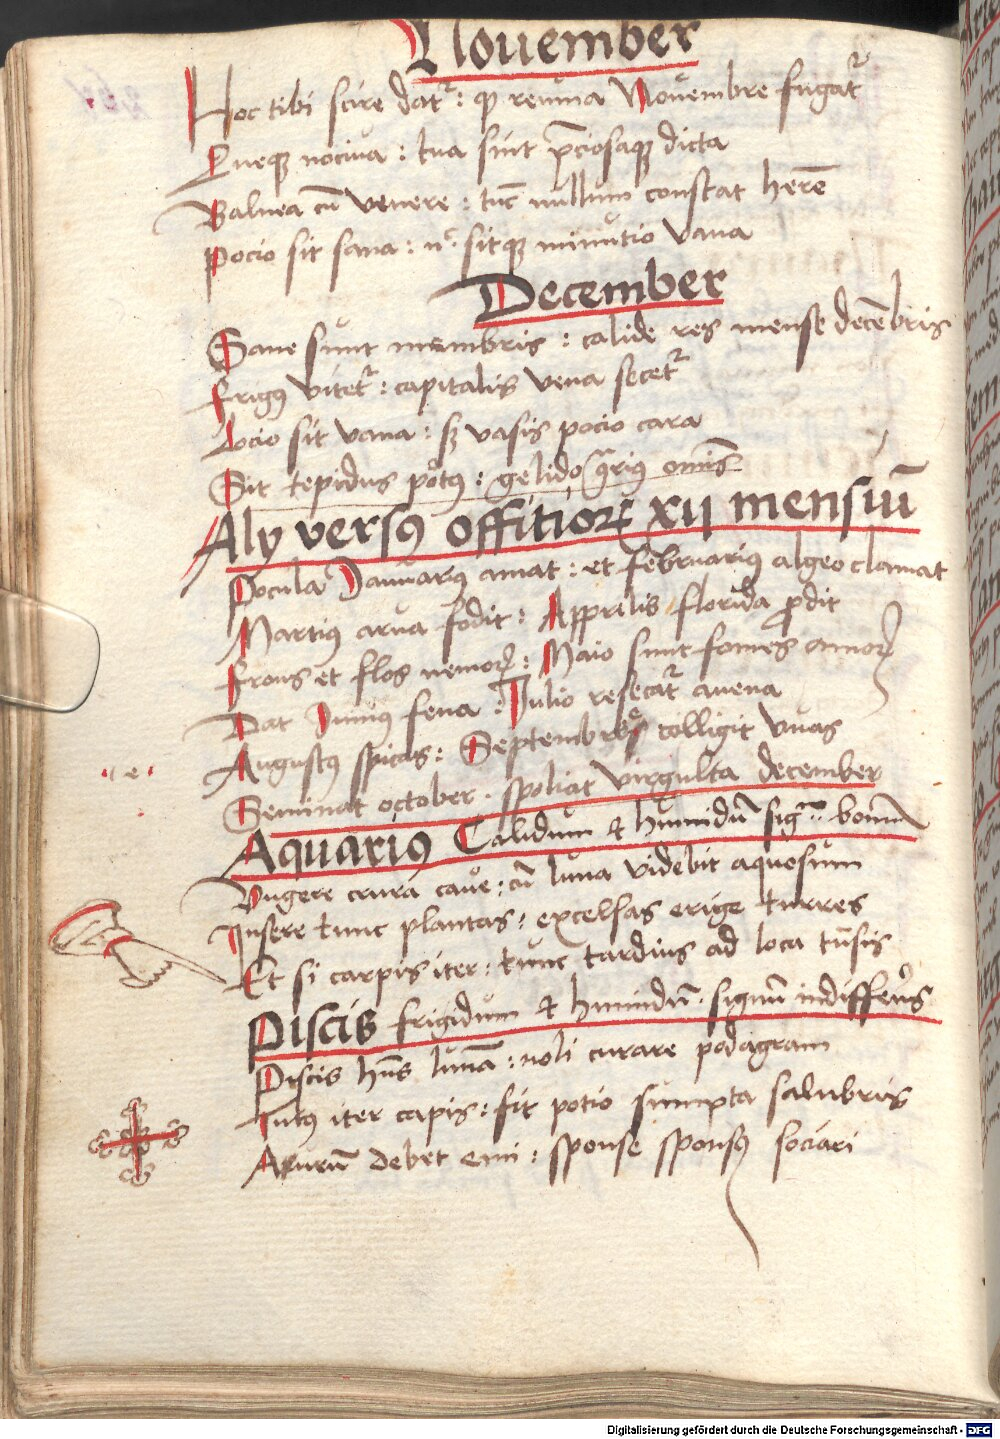 Nouember
Hoc tibi scire datʳ : qͥ reuma Nouembre fugatʳ
Queqꝫ nociua : tua sint p̄ciosaqꝫ dicta
Balnea cū venere : tūc nullum constat herē
Pocio sit sana : sitqꝫ minutio vana
December
Sane sunt membris : calide res mense decēbris
Frigꝰ vitetʳ : capitalis vena secetʳ
Locio sit vana : sꝫ vasis pocio cara
Sit tepidus potꝰ : gelido
Aly versꝰ offitioꝝ xij mensiū
Pocula Januariꝰ amat : et februariꝰ algeo clamat
Martiꝰ arua fodit : Apprilis florida ꝓdit
Frons et flos nemoꝝ : Maio sunt fomes amoꝝ
Dat Juniꝰ fena : Julio resecatʳ auena
Augustꝰ spicas : September colligit vuas
Seminat october . spoliat virgulta december
.. e ..
Aquariꝰ Calidum et humidū sigᵐ bonū
Vngere crura caue : cū luna videbit aquosum
Insere tunc plantas : excelsas erige turres
Et si carpis iter : tunc tardius ad loca tūsis
Piscis frigidum et humidū . signū indifferēs
Piscis hn̄s lunā : noli curare podagram
Tutꝰ iter capis : fit potio sumpta salubris
Agurū debet emi : sponse sponsꝰ sociari
Digitalisierung gefördert durch die Deutsche Forschungsgemeinschaft - DFG